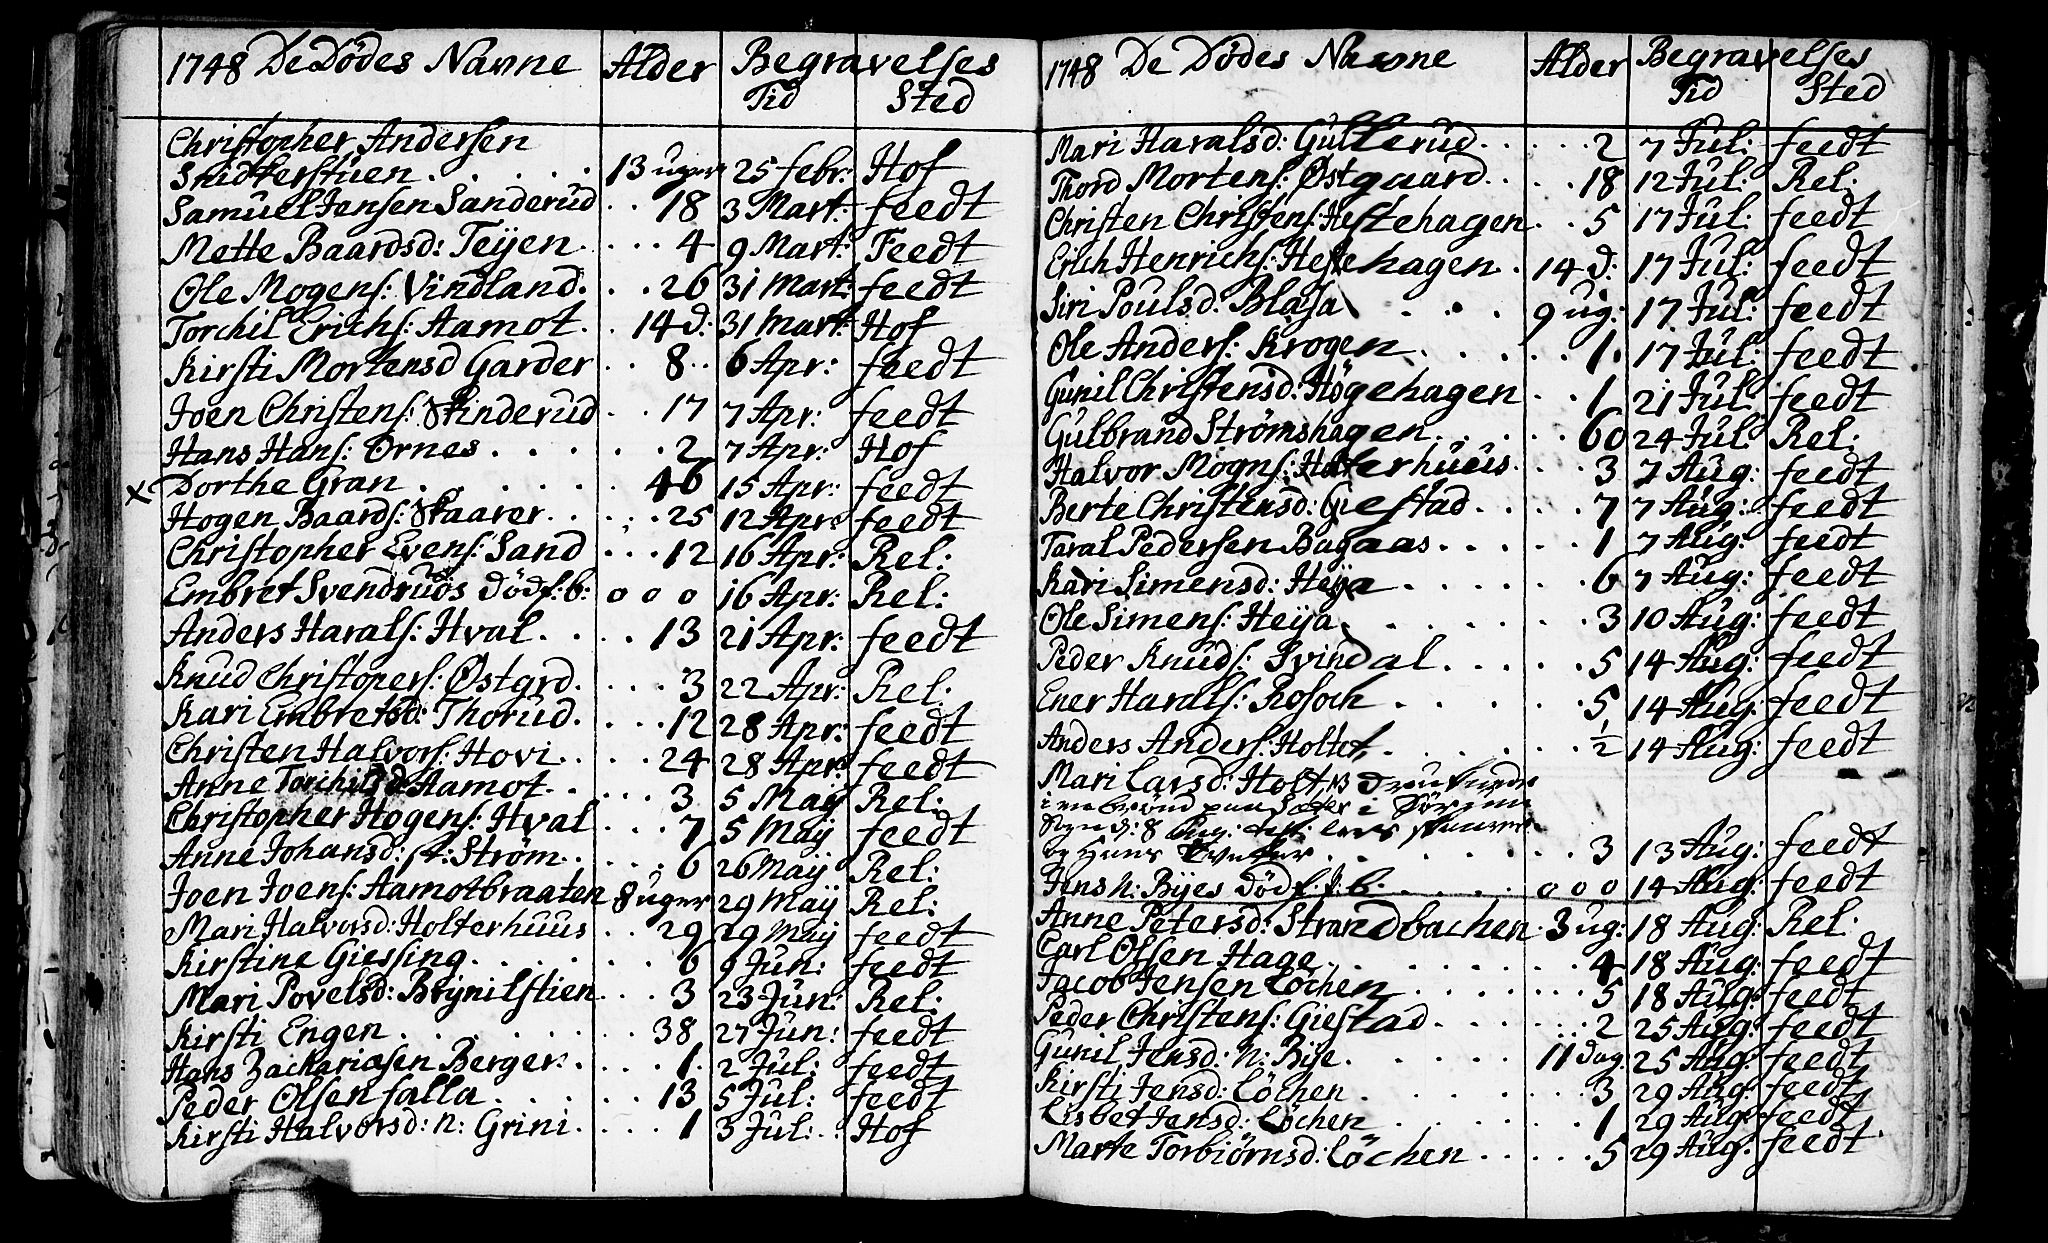 1748 De Dödes Navne Alder Begravelses
Tid Sted
Christopher Andersen
Snidkerstuen . . . . . . 13 uger 25 febr: Hof
Samuel Jensen Sanderud . . 18 3 Mart: feedt
Mette Baardsd: Teÿen . . . . 4 9 Mart: Feedt
Ole Mogens: Vindland . . . 26 31 Mart: feedt
Torchil Erichs: Aamot . . 14 d: 31 Mart: Hof
Kirsti Mortensd Garder . . 8 . . 6 Apr: feedt
Joen Christens: Skinderud . . 17 7 Apr: feedt
Hans Hans: Ornes . . . . . . 2 7 Apr: Hof
x Dorthe Gran . . . . . . 46 15 Apr: feedt
Hogen Baards: Skaarer . . . . . 25 12 Apr: feedt
Christopher Evens: Sand . . . 12 16 Apr: Rel:
Embret Svendruds dödf: b: o o o 16 Apr: Rel:
Anders Harals: Hval . . . . 13 21 Apr: feedt
Knud Christopers: Østgrd . . . . 3 22 Apr: Rel:
Kari Embretsd: Thorud . . . . 12 28 Apr: feedt
Christen Halvors: Hovi . . . . 24 28 Apr: feedt
Anne Torchilsd: Aamot . . . . 3 5 Maÿ Rel:
Christopher Hogens: Hval . . . 7 5 Maÿ feedt
Anne Johansd: st: Ström . . . . 6 26 Maÿ Rel:
Joen Joens: Aamotbraaten 8 uger 29 Maÿ Rel:
Mari Halvorsd: Holterhuus . . 29 29 Maÿ feedt
Kirstine Giessing . . . . . . . 6 9 Jun: feedt
Mari Povelsd: Brÿnilstien . . . 3 23 Jun: Rel:
Kirsti Engen . . . . . . . . 38 27 Jun: feedt
Hans Zachariasen Berger . . . . 1 . 2 Jul: feedt
Peder Olsen falla . . . . . . 13 5 Jul: feedt
Kirsti Halvorsd: n: Grini . . . . 1 3 Jul: . . Hof
1748 De Dödes Navne Alder Begravelses
Tid Sted
Mari Haralsd: Gulterud . . . . . 2 7 Jul: feedt
Thord Mortens: Østgaard . . . . 18 12 Jul: Rel:
Christen Christens: Hestehagen . . 5 17 Jul: feedt
Erich Henrichs: Hestehagen . 14 d: 17 Jul: feedt
Siri Poulsd: Blasa . . . 9 ug: 17 Jul: feedt
Ole Anders: Krogen . . . . . 1 . 17 Jul: feedt
Gunil Christensd: Högehagen . . 1 21 Jul: feedt
Gulbrand Strömshagen . . . . . 60 24 Jul: Rel:
Halvor Mogns: Holterhuus . . . 3 7 Aug: feedt
Berte Christensd: Giestad . . . . 7 7 Aug: feedt
Taral Pedersen Bagaas . . . . . 1 7 Aug: feedt
Kari Simensd: Heÿa . . . . . . 6 7 Aug: feedt
Ole Simens: Heÿa . . . . . . . 3 10 Aug: feedt
Peder Knuds: Svindal . . . . . 5 14 Aug: feedt
Ener Harals: Rosoch . . . . . . 5 14 Aug: feedt
Anders Anders: Holtet . . . . . ½ 14 Aug: feedt
Mari Larsd: Holt, NB
i en brönd paa Sæter i
d: 8 Aug: Lars
og Hans . . . . . . . . 3 13 Aug: feedt
Jens n: Bÿes dödf: b: . . . . . o o o 14 Aug: feedt
Anne Petersd: Strandbachen . 3 ug: 18 Aug: Rel:
Carl Olsen Hage . . . . . . . . 4 18 Aug: feedt
Jacob Jensen Löchen . . . . . . . 5 18 Aug: feedt
Peder Christens: Giestad . . . . . . 2 25 Aug: feedt
Gunil Jensd: n: Bÿe . . . . . 11 dag. 25 Aug: feedt
Kirsti Jensd: Löchen . . . . . . . 3 29 Aug: feedt
Lisbet Jensd: Löchen . . . . . . . 1 29 Aug: feedt
Marte Torbiörnsd: Löchen . . . . . 5 29 Aug: feedt